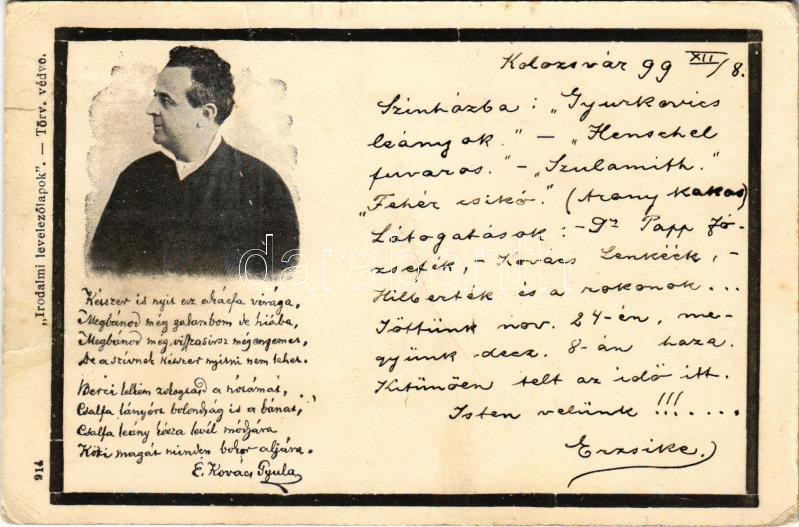 „Irodalmi levelezőlapok". — Törv. védve.
914
Kétszer is nyit az akácfa virága,
Megbánod még galambom de hiába,
Megbánod még, visszasirsz még engemet,
De a szivnek kétszer nyitni nem lehet.
Berci lelkem zálogtasd a nótámat,
Csalfa lányért bolondság is a bánat,
Csalfa leány kósza levél módjára
Köti magát minden bokor aljára.
É. Kovács Gyula
Kolozsvár 99 XII/8.
Szinházba: „Gyurkovics
leányok." — „Henschel
fuvaros." — „Szulamith."
„Fehér csikó." (Arany kakas)
Látogatások: — Dr Papp Jó-
zsefék, — Kovács Lenkéék, —
Hilberték és a rokonok...
Jöttünk nov. 24-én, me-
gyünk decz. 8-án haza.
Kitünően telt az idő itt.
Isten velünk !!!.....
Erzsike.
darabanth